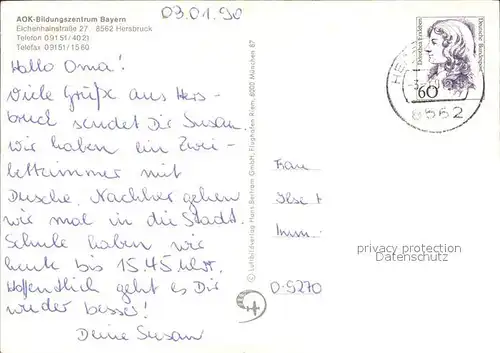 03.01.90
AOK-Bildungszentrum Bayern
Eichenhainstraße 27 · 8562 Hersbruck
Telefon 0 91 51 / 40 21
Telefax 0 91 51 / 15 60
Hallo Oma!
Viele Grüße aus Hers-
bruck sendet Dir Susan.
Wir haben ein Zwei-
bettzimmer mit
Dusche. Nachher gehen
wir mal in die Stadt.
Schule haben wir
heute bis 15.45 Uhr.
Hoffentlich geht es Dir
wieder besser!
Deine Susan
© Luftbildverlag Hans Bertram GmbH, Flughafen Riem, 8000 München 87
Deutsche Bundespost
60
8562
Frau
Ilse
Imm
D-5270
privacy protection
Datenschutz